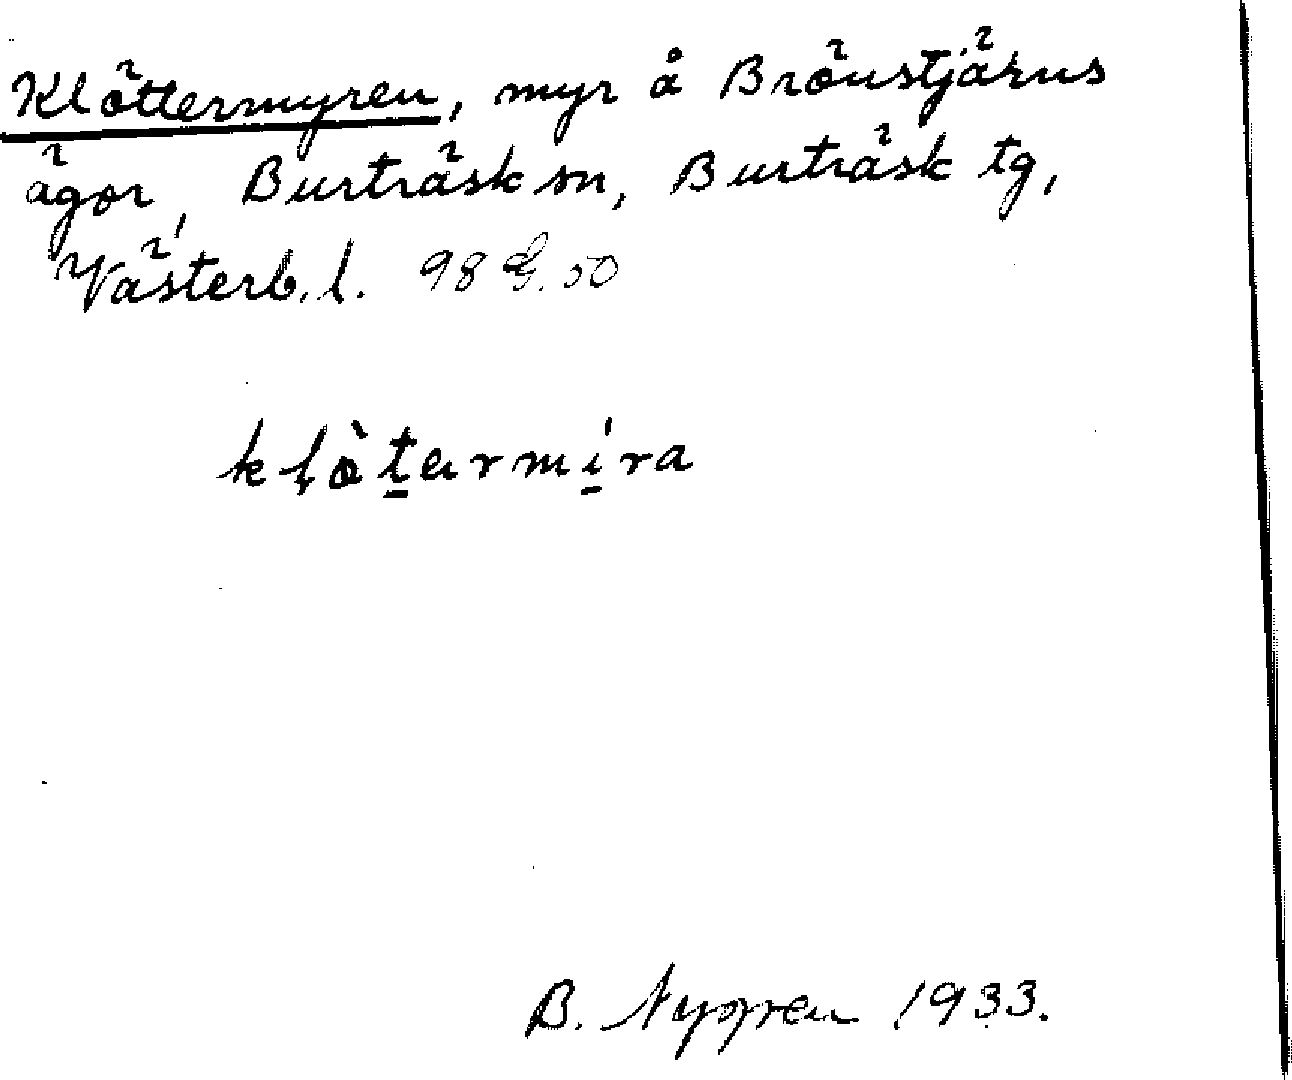 Klöttermyren, myr å Brönstjärns
ägor, Burträsk sn, Burträsk tg,
Västerb. l. 98 G. 50
klòt̲ermí̲ra
B. Nygren 1933.